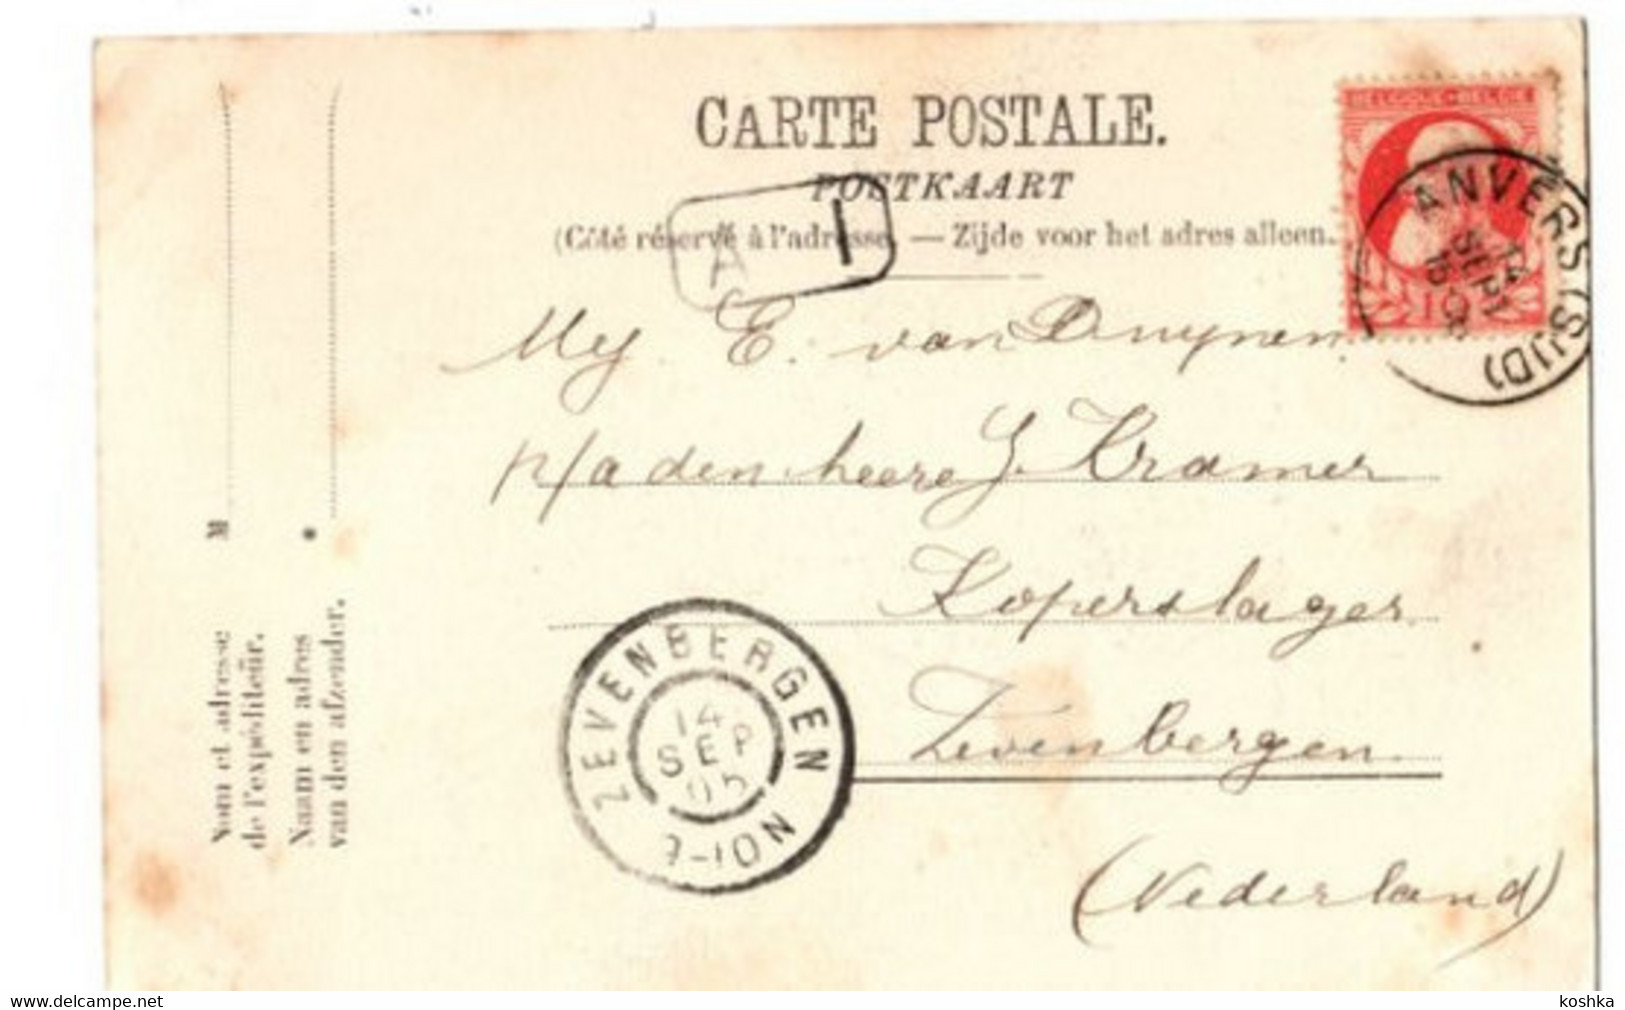 CARTE POSTALE.
POSTKAART
(Côté réservé à l'adresse. — Zijde voor het adres alleen.
BELGIQUE·BELGIE
10
ANVERS (SUD)
14
SEPT
A I
Mej. E. van Duynen
p/a den heere J. Kramer
Koperslager
Zevenbergen
(Nederland)
ZEVENBERGEN
14
SEP
05
7-10N
M
Nom et adresse
de l'expéditeur.
Naam en adres
van den afzender.
delcampe.net
koshka